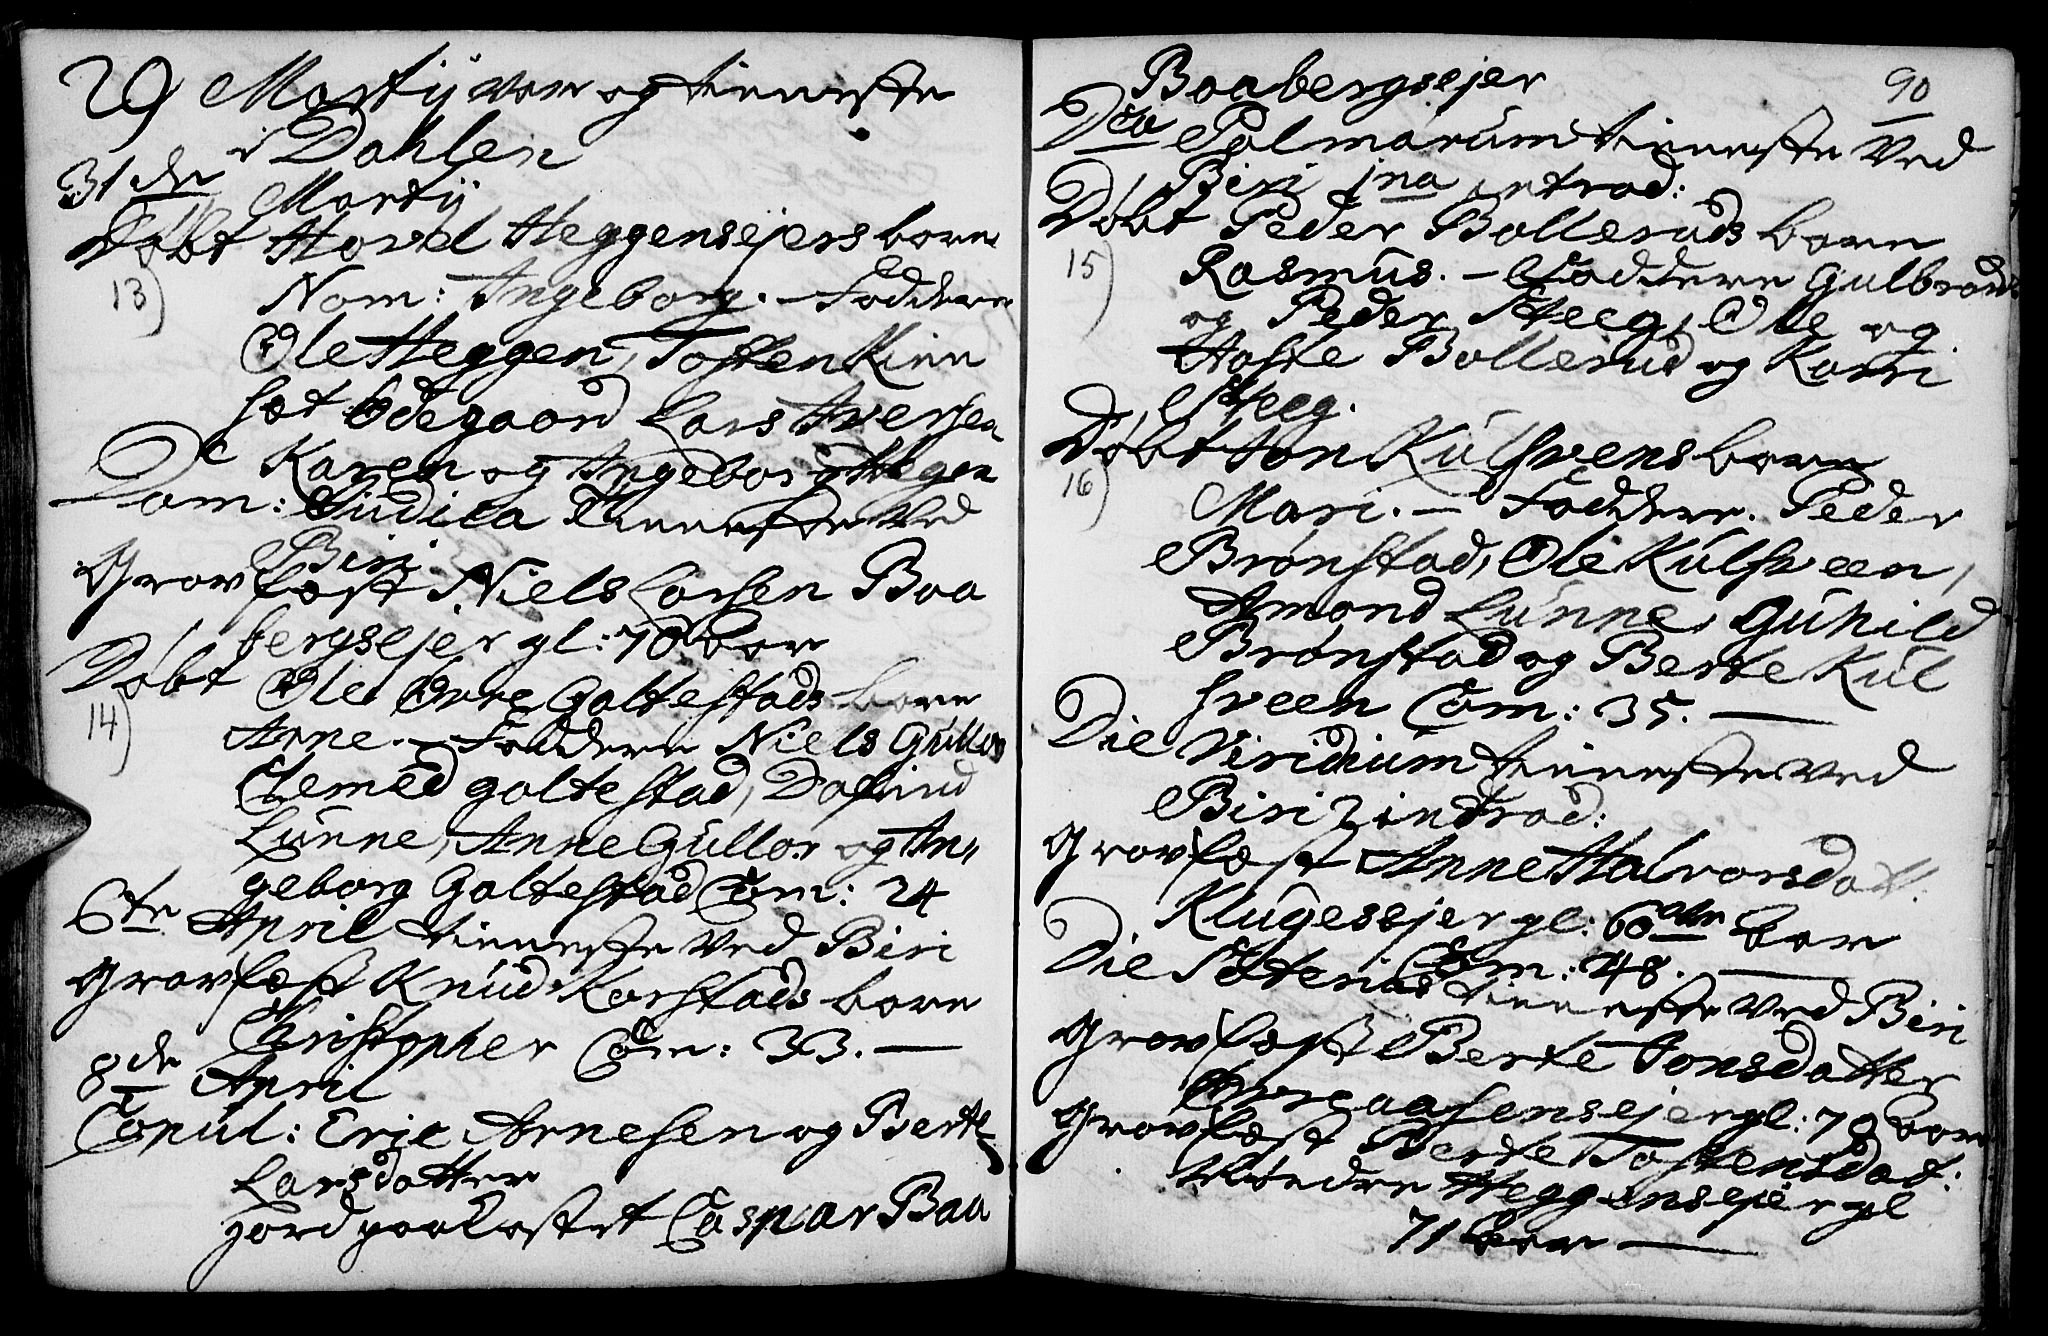 29 Martÿ var og tieneste
i Dahlen
31 de Martÿ
Døbt Hovel Heggensejers barn
13) Nom: Ingeborg. – Faddere
Ole Heggen, Tosten Kinn
sæt Ødegaard Lars Iversen
Karen og Ingeborg Heggen
Dom: Judica Tieneste Ved
Biri
Gravfæst Niels Larsen Baa
bergsejer gl: 70 Aar
Døbt Ole Øvre Galtestads barn
14) Arne. – Faddere Niels Gullor
Clemed Galtestad, Dorthe
Lunne, Anne Gullor og In,
geborg Galtestad Com: 24
6te April tieneste Ved Biri
Gravfæst Knud Karstads barn
Christopher Com: 33. –
8de April
Copul: Eric Arnesen og Berte
Larsdatter
Jordpaakastet Caspar Baa
90
Baabergsejer
Dca Palmarum tieneste Ved
Biri 1na intrad:
Døbt Peder Bollerruds barn
15) Rasmus. – Faddere Gulbrand
og Peder Steeg, Ole og
Aaste Bollerud og Karri
Steeg.
Døbt Jon Kulsvens barn
16) Mari. – Faddere. Peder
Brønstad, Ole Kulsveen,
Amond Lunne, Guhild
Brønstad og Berte Kul
sveen Com: 35. –
Die Viridium tieneste Ved
Biri 2 intrad:
Gravfæst Anne Halvorsdatt.
Klugesejer gl: 60 Aar
Com: 48. –
Die Pateris tieneste Ved Biri
Gravfæst Berte Jonsdatter
Øvre aasensejer gl: 70 Aar
Gravfæst Berte Tostensdat:
Nordre Heggensejer gl
71 Aar –